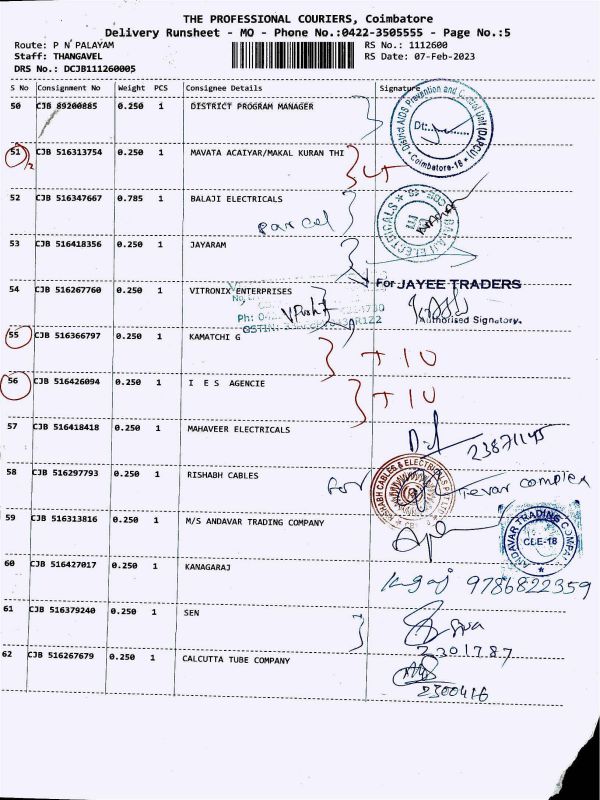 THE PROFESSIONAL COURIERS, Coimbatore
Delivery Runsheet - MO - Phone No.:0422-3505555 - Page No.:5
Route: P N PALAYAM RS No.: 1112600
Staff: THANGAVEL RS Date: 07-Feb-2023
DRS No.: DCJB111260005
S No Consignment No Weight PCS Consignee Details Signature
50 CJB 89200885 0.250 1 DISTRICT PROGRAM MANAGER
District AIDS Prevention and Control Unit (DAPCU)
Dt:
Coimbatore-18
51 CJB 516313754 0.250 1 MAVATA ACAIYAR/MAKAL KURAN THI
52 CJB 516347667 0.785 1 BALAJI ELECTRICALS
parcel
BALAJI ELECTRICALS
53 CJB 516418356 0.250 1 JAYARAM
For JAYEE TRADERS
54 CJB 516267760 0.250 1 VITRONIX ENTERPRISES
Authorised Signatory.
55 CJB 516366797 0.250 1 KAMATCHI G
56 CJB 516426094 0.250 1 I E S AGENCIE
57 CJB 516418418 0.250 1 MAHAVEER ELECTRICALS
58 CJB 516297793 0.250 1 RISHABH CABLES
for Tevar complex
59 CJB 516313816 0.250 1 M/S ANDAVAR TRADING COMPANY
ANDAVAR TRADING COMPA
CBE-18
60 CJB 516427017 0.250 1 KANAGARAJ
9786822359
61 CJB 516379240 0.250 1 SEN
2301787
62 CJB 516267679 0.250 1 CALCUTTA TUBE COMPANY
2300416